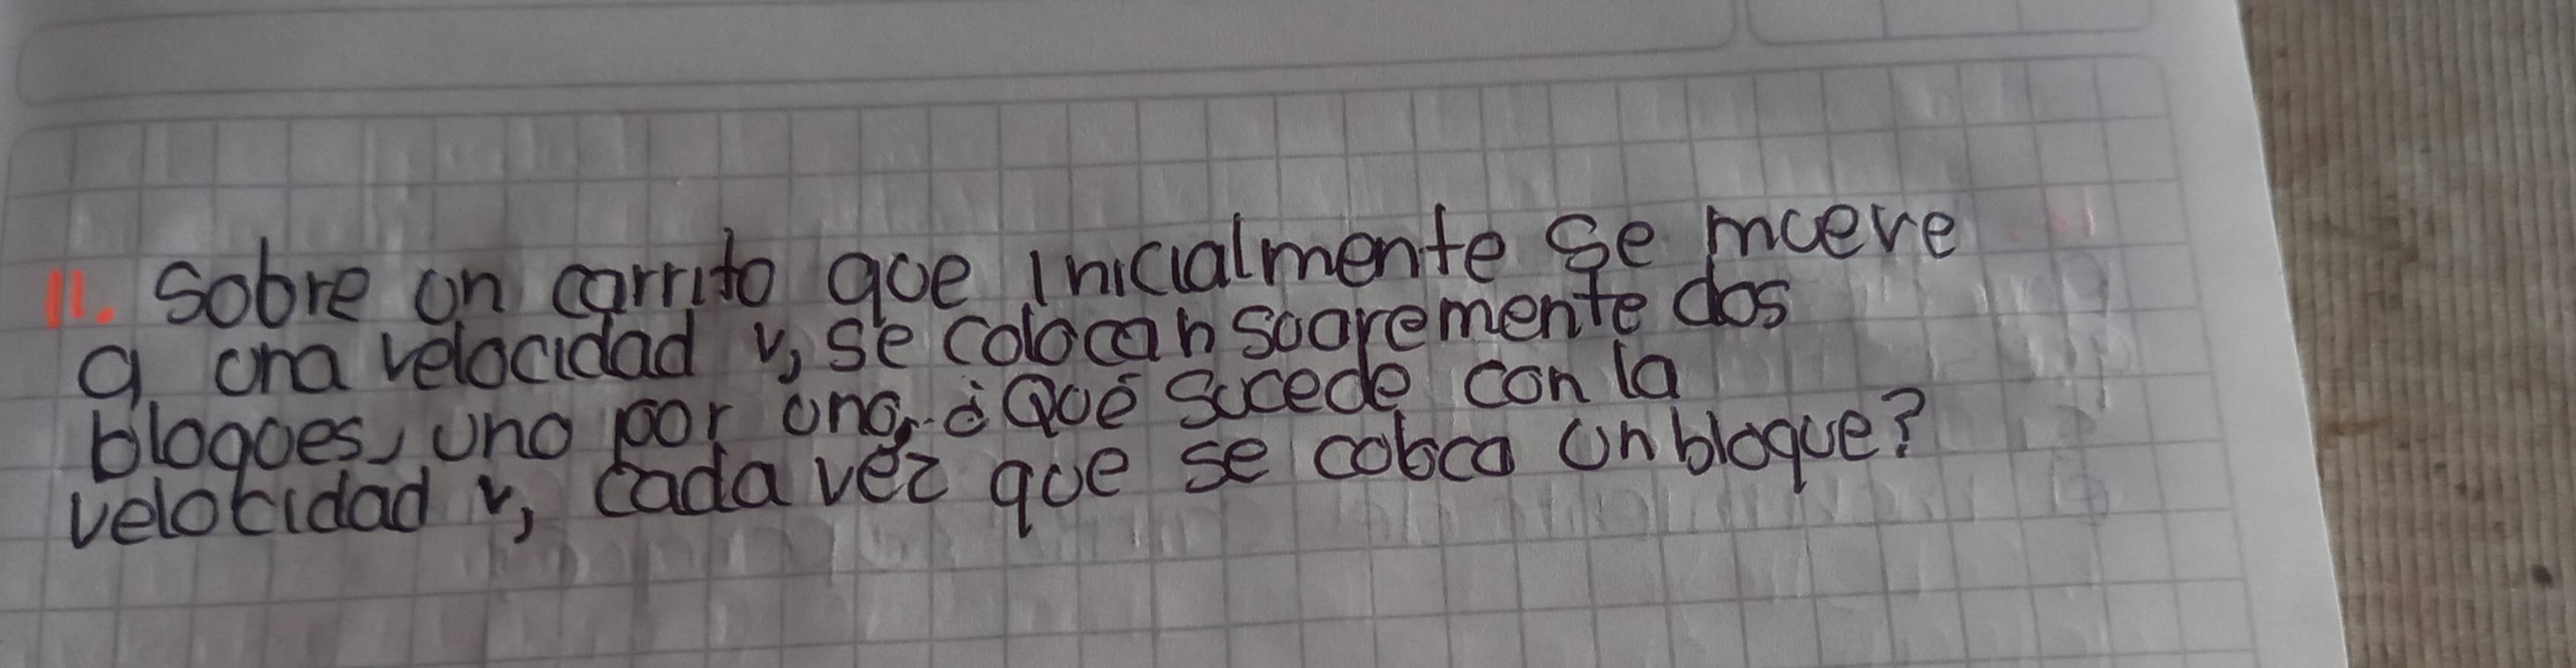 11. Sobre un carrito que inicialmente se mueve
a una velocidad v, se colocan suavemente dos
bloques, uno por uno, ¿Qué sucede con la
velocidad v, cada vez que se coloca un bloque?